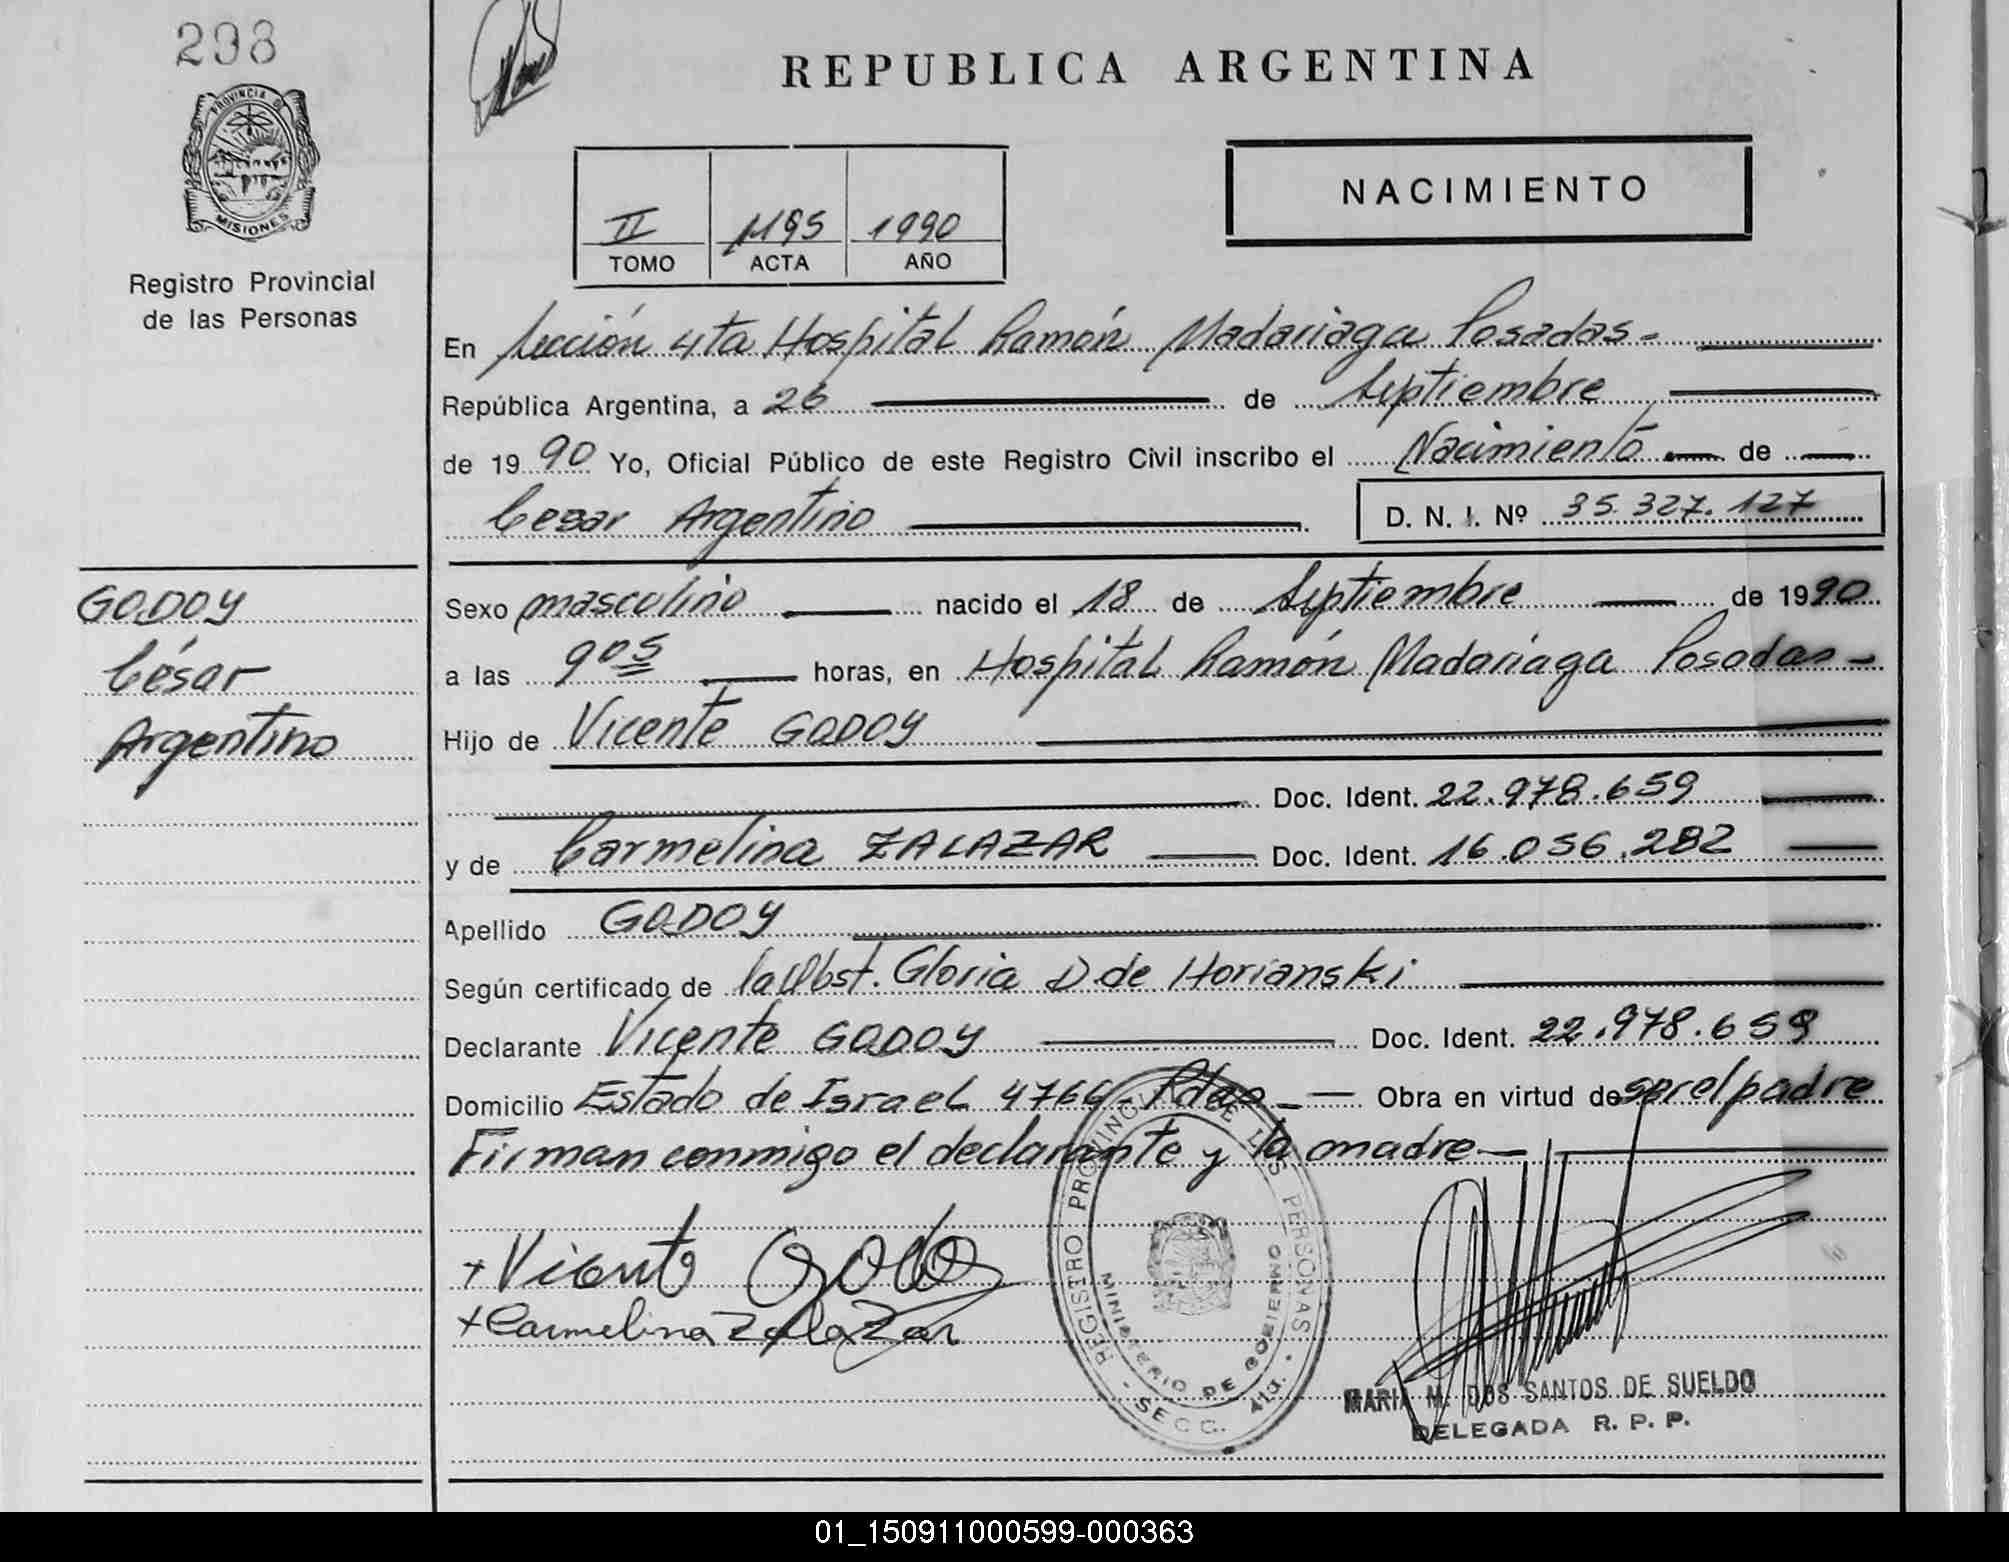 298
PROVINCIA DE
MISIONES
Registro Provincial
de las Personas
REPUBLICA ARGENTINA
NACIMIENTO
II 1195 1990
TOMO ACTA AÑO
En Sección 4ta Hospital Ramón Madariaga Posadas-
República Argentina, a 26 de Septiembre
de 1990 Yo, Oficial Público de este Registro Civil inscribo el Nacimiento de
Cesar Argentino D. N. I. Nº 35.327.127
GODOY
César
Argentino
Sexo masculino nacido el 18 de Septiembre de 1990
a las 9 05 horas, en Hospital Ramón Madariaga Posadas-
Hijo de Vicente GODOY
Doc. Ident. 22.978.659
y de Carmelina ZALAZAR Doc. Ident. 16.056.282
Apellido GODOY
Según certificado de la Obst. Gloria D de Horianski
Declarante Vicente GODOY Doc. Ident. 22.978.659
Domicilio Estado de Israel 4764- Pdas- Obra en virtud de ser el padre
Firman conmigo el declarante y la madre-
+Vicente Godoy
+Carmelina Zalazar
REGISTRO PROVINCIAL DE LAS PERSONAS
MINISTERIO DE GOBIERNO
SECC. 4ta.
MARIA M. DOS SANTOS DE SUELDO
DELEGADA R. P. P.
01_150911000599-000363